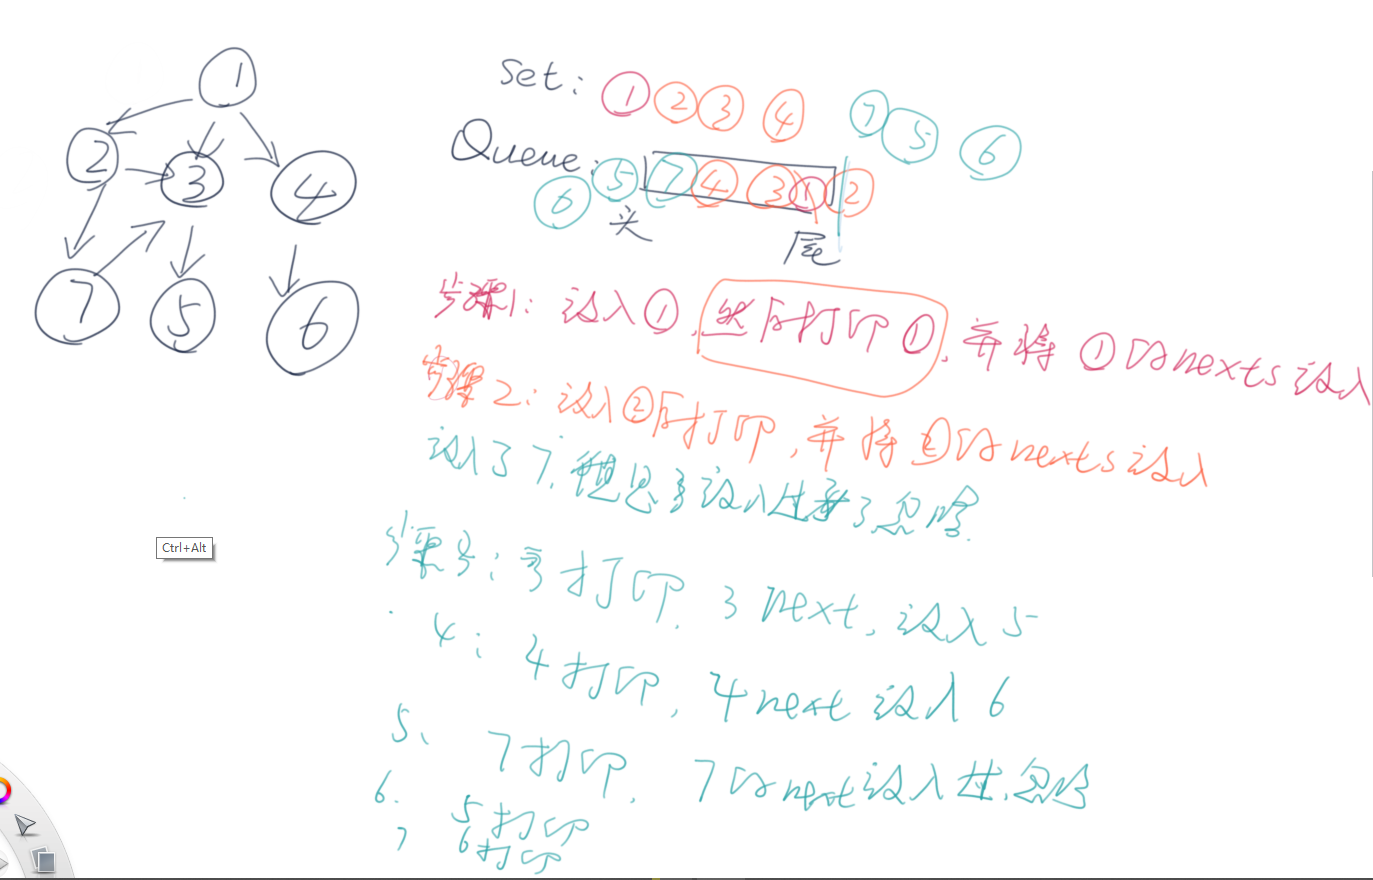 1
2 3 4
7 5 6
Set: 1 2 3 4 7 5 6
Queue: 6 5 7 4 3 1 2
头 尾
步骤1: 设入①,然后打印①,并将①的nexts设入
步骤2: 设入②后打印,并将②的nexts设入
设入了7,但是3设入过了忽略.
步骤3: 3打印, 3 next, 设入5
4: 4打印, 4next设入6
5、 7打印, 7的next设入过,忽略
6. 5打印
7 6打印
Ctrl+Alt